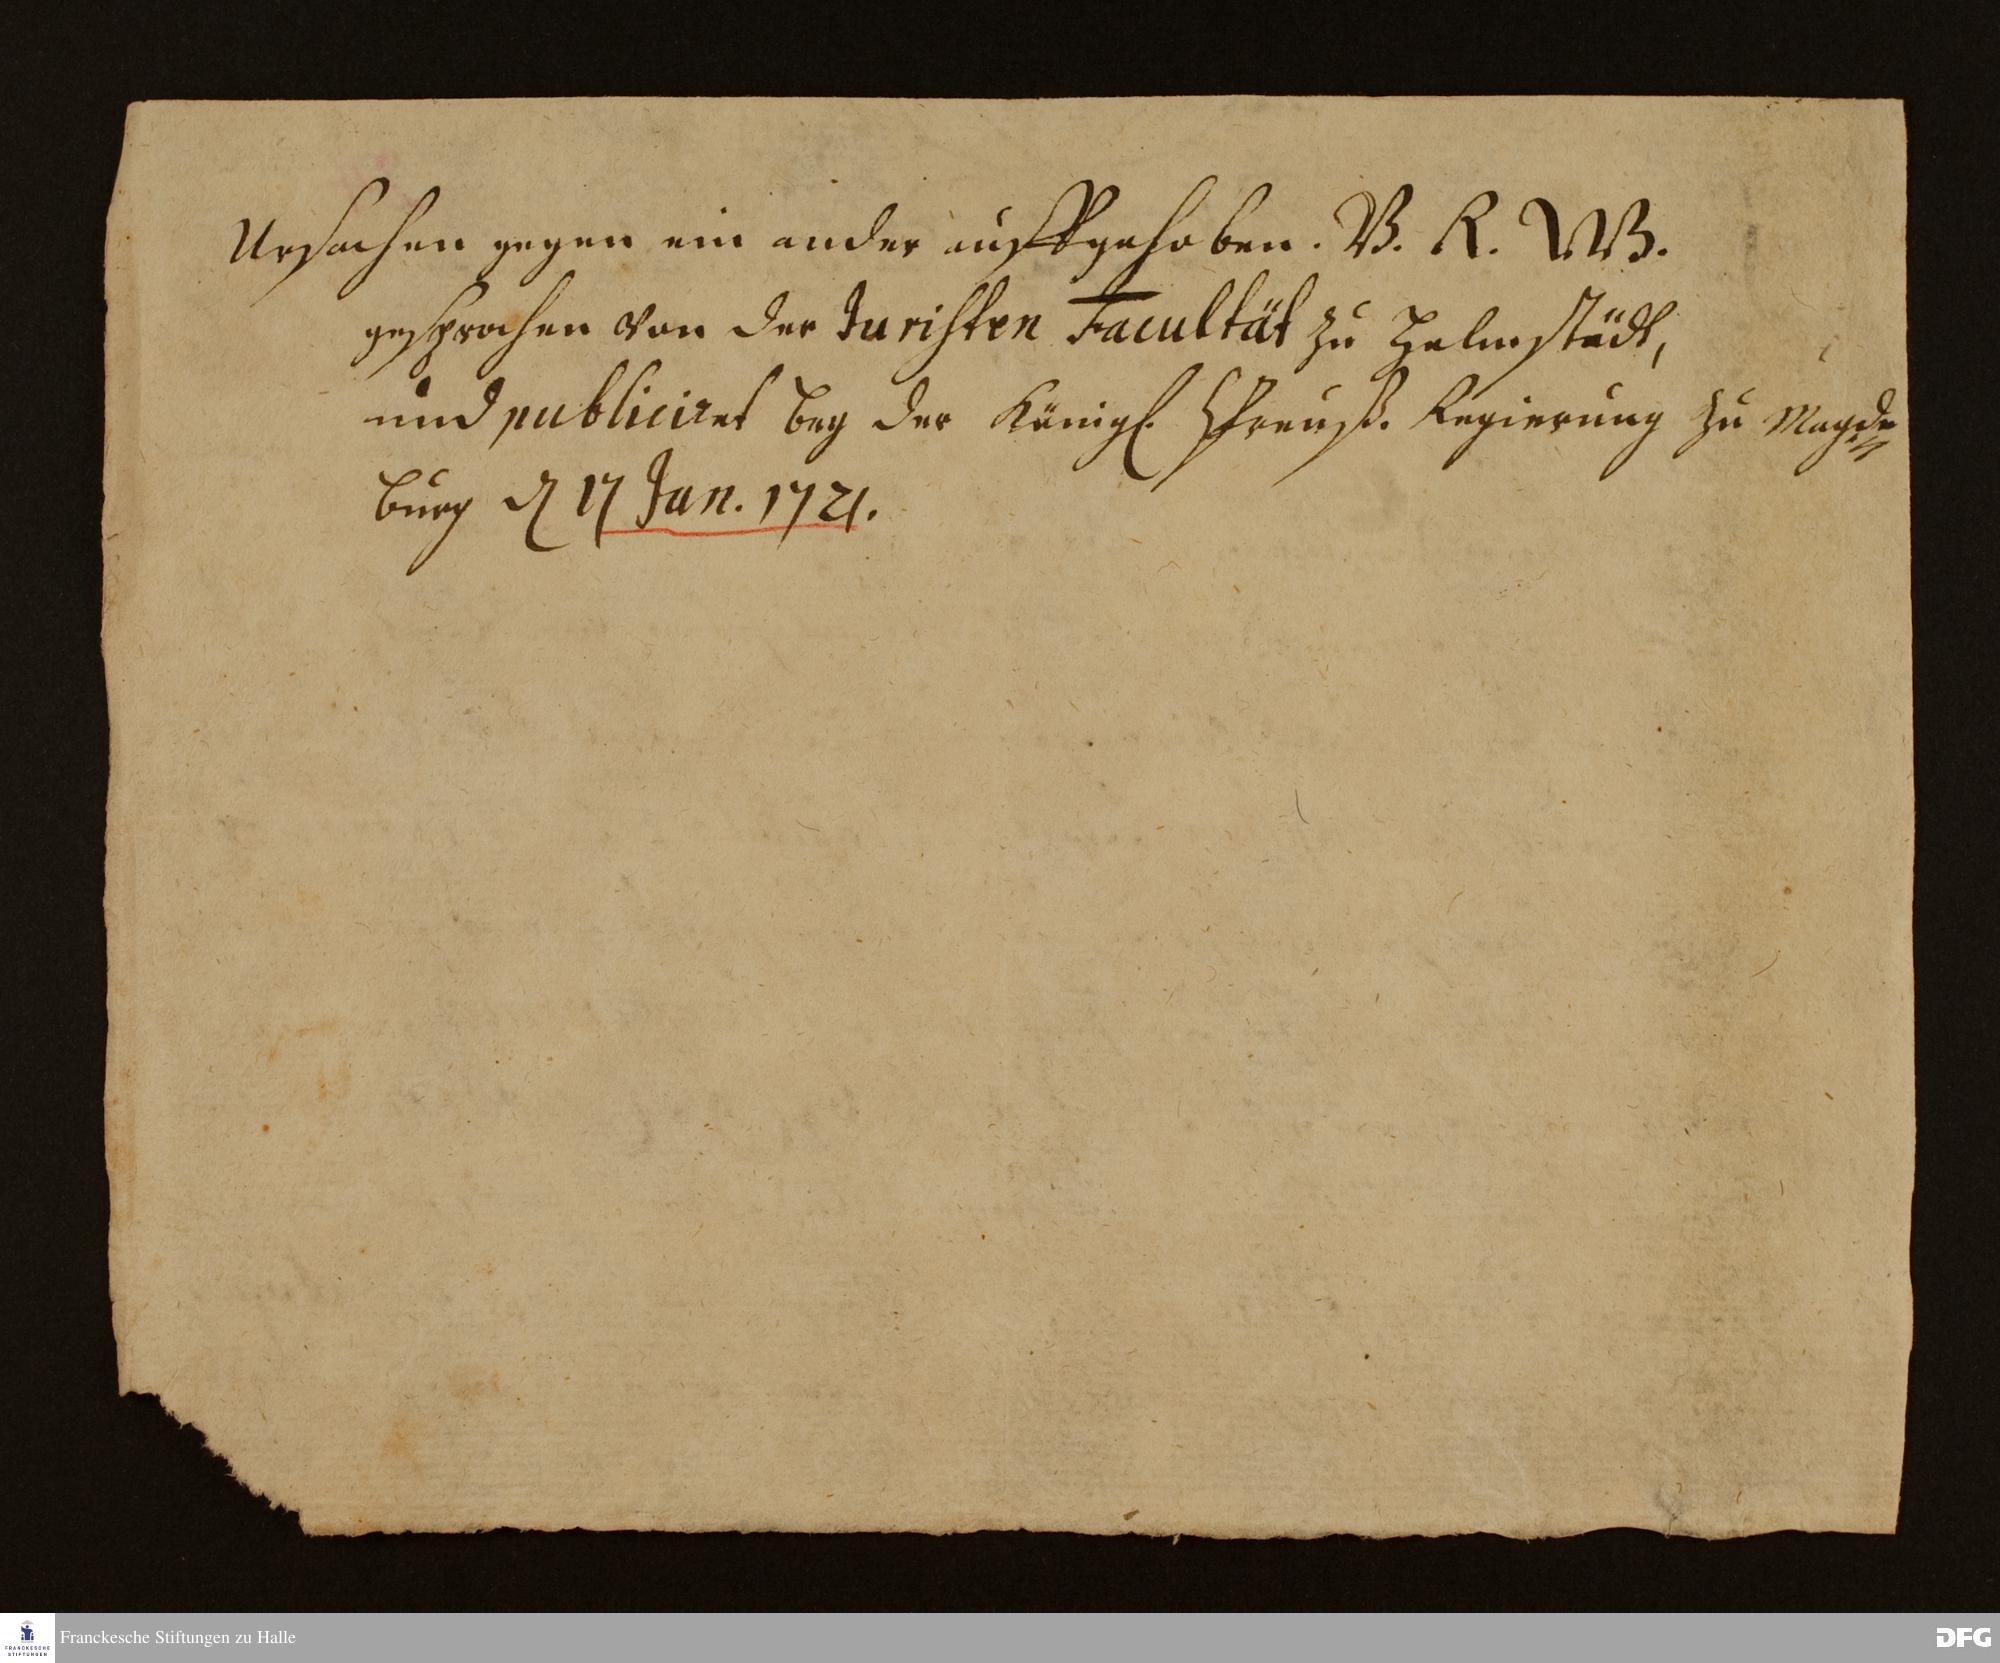 Ursachen gegen ein ander auffgehoben. V. R. W.
gesprochen von der Juristen Facultät zu Helmstädt,
und publiciret bey der Königl. Preuß. Regierung zu Magde=
burg d 17 Jan. 1721.
Franckesche Stiftungen zu Halle
FRANCKESCHE
STIFTUNGEN
DFG